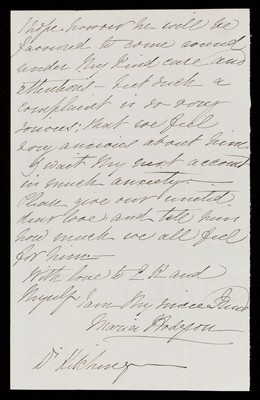 I hope however he will be
favoured to come round
under thy kind care and
attentions - but such a
complaint is so very
serious, that we feel
very anxious about him.
I wait thy next account
in much anxiety. -
Please give our united
dear love and tell him
how much we all feel
for him. -
With love to E H and
thyself I am thy sincere friend
Maria Hodgson
Dr Kitching